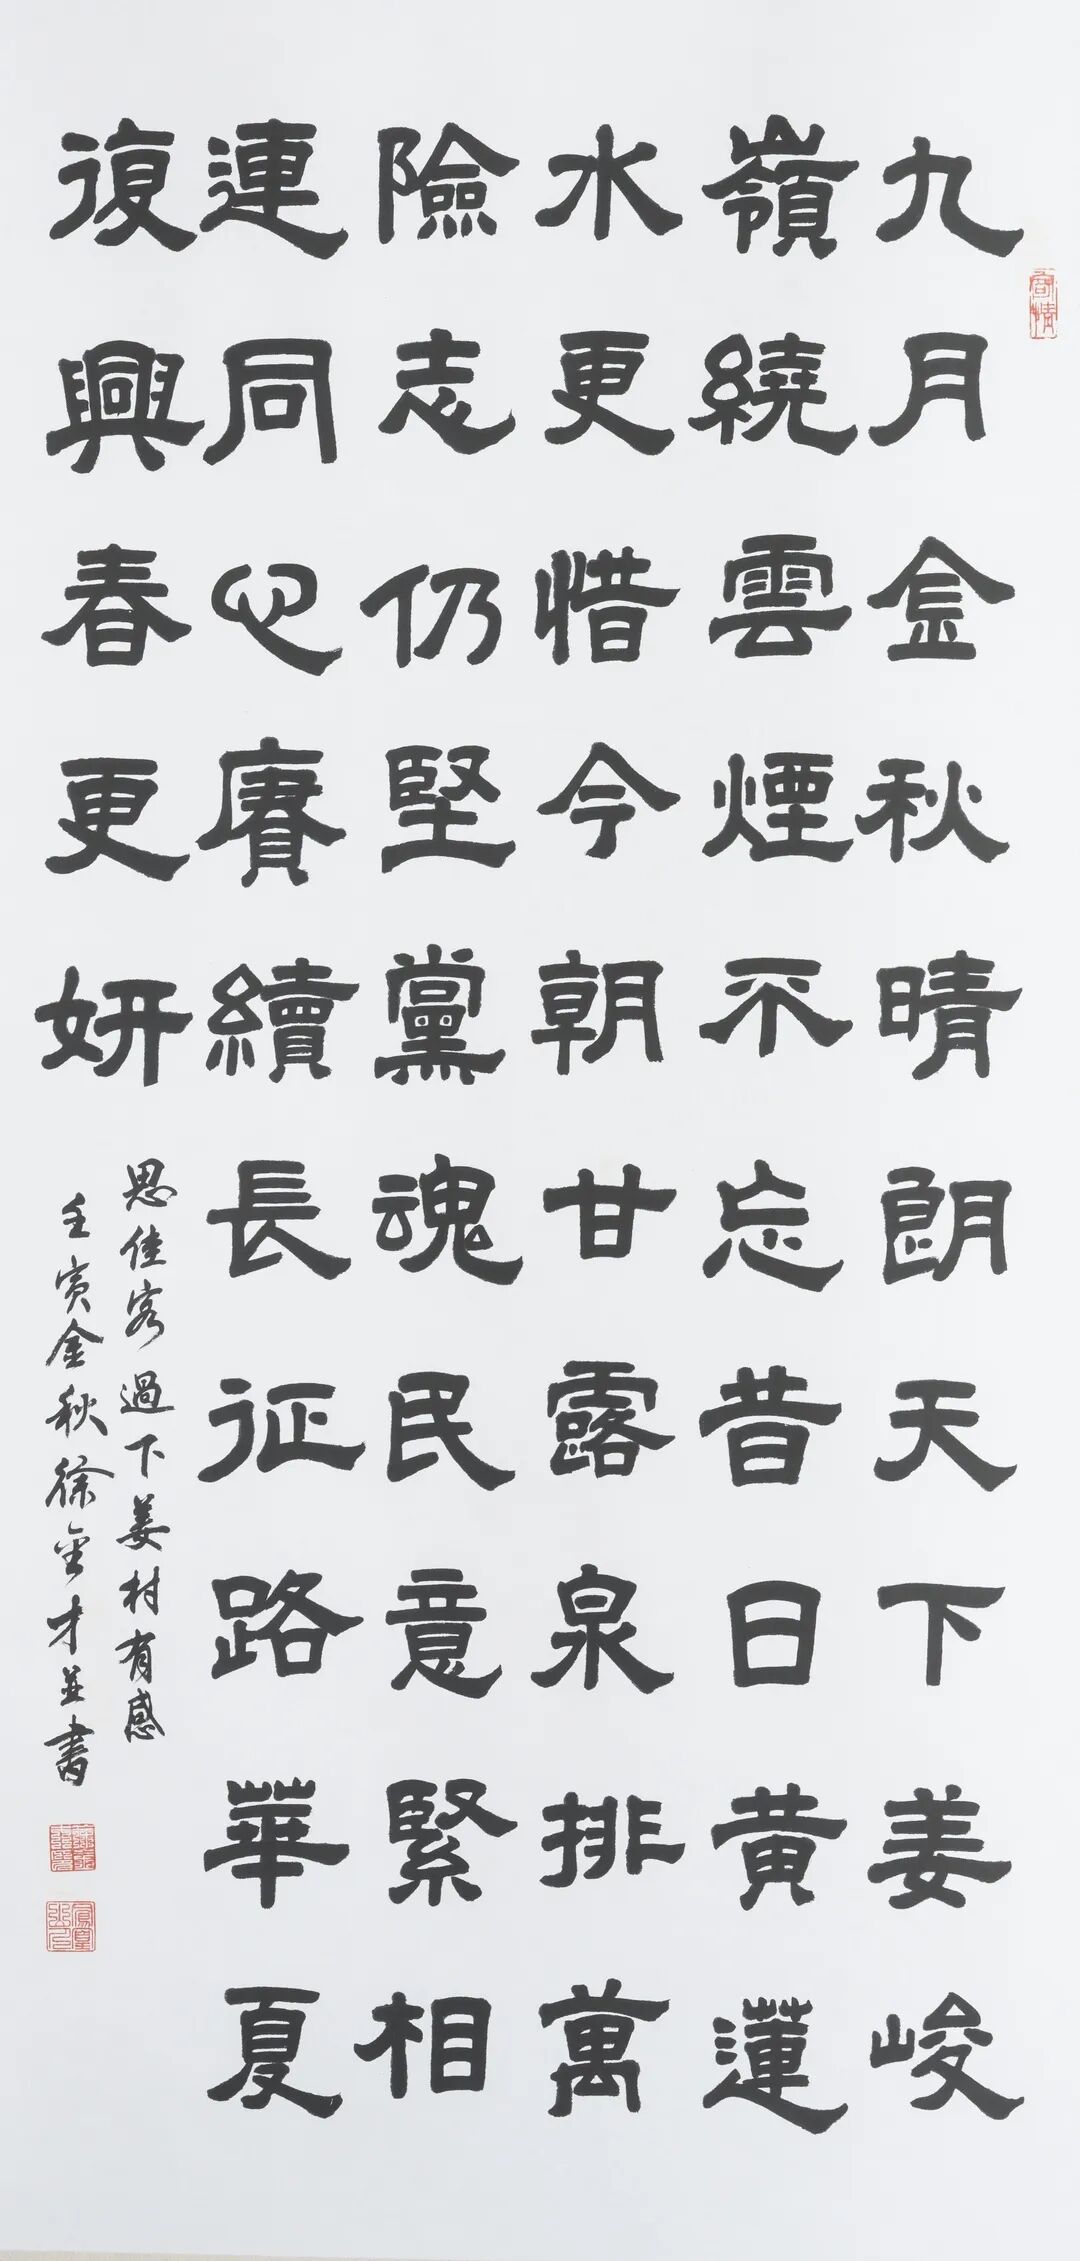 九月金秋晴朗天下姜峻
嶺繞雲煙不忘昔日黄蓮
水更惜今朝甘露泉排萬
險志仍堅黨魂民意緊相
連同心賡續長征路華夏
復興春更妍
思佳客過下姜村有感
壬寅金秋徐金才並書